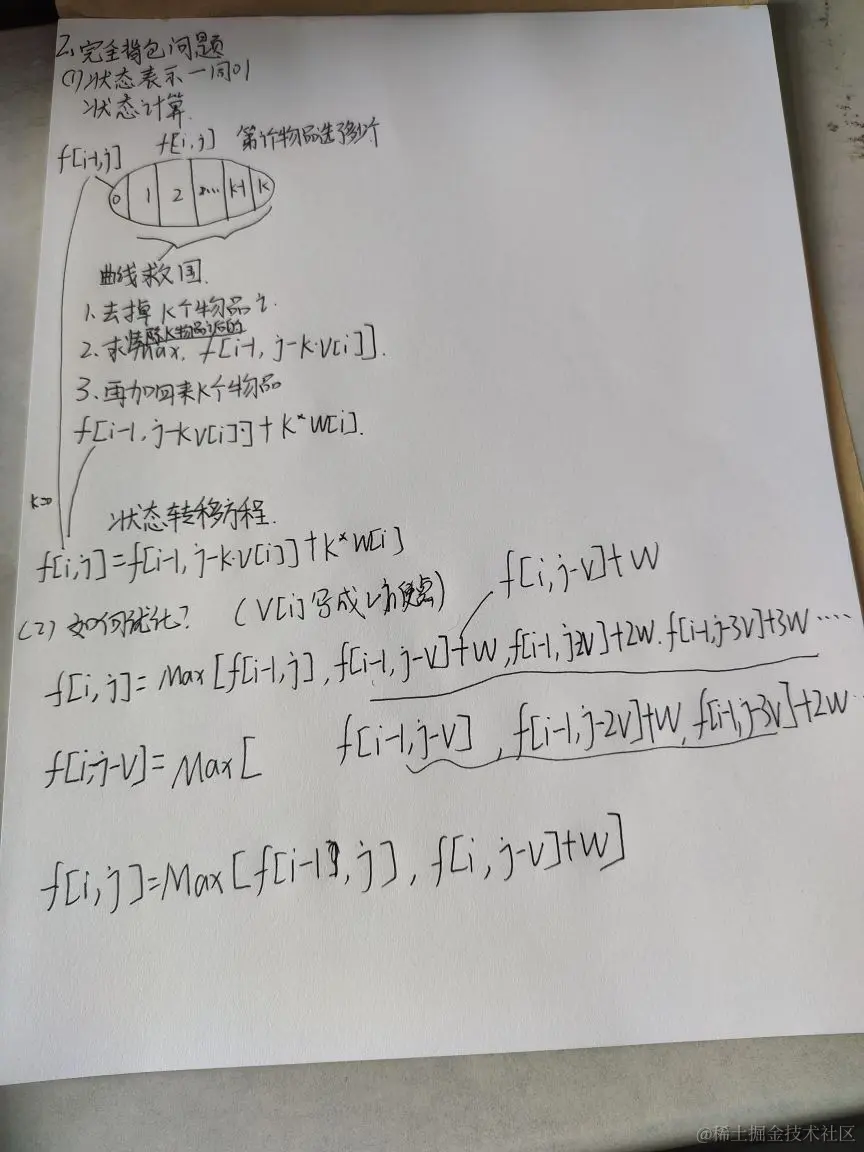 2、完全背包问题
(1)状态表示一同01
状态计算
f[i,j] 第i个物品选了多少个
f[i-1,j]
0 1 2 .... k-1 k
曲线救国.
1.去掉K个物品i.
K物品i后的
2.求Max, f[i-1, j-k·V[i]].
3.再加回来K个物品
f[i-1, j-kV[i]]+k*W[i].
k=0
状态转移方程.
f[i,j]=f[i-1, j-k·V[i]]+k*W[i]
f[i,j-v]+w
(2)如何优化? (V[i]写成V方便点)
f[i,j]= Max[f[i-1,j], f[i-1,j-v]+w, f[i-1,j-2v]+2w. f[i-1,j-3v]+3w ....
f[i,j-v]= Max[ f[i-1,j-v] , f[i-1,j-2v]+w, f[i-1,j-3v]+2w ..
f[i,j]=Max[f[i-1,j], f[i,j-v]+w]
@稀土掘金技术社区